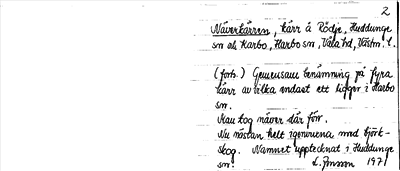 2
Näverkärren, kärr å Rödje, Huddunge
sn ok Karbo, Harbo sn, Våla hd, Västm. l.
(forts.) Gemensam benämning på fyra
kärr av vilka endast ett ligger i Harbo
sn.
Man tog näver där förr.
Nu nästan helt igenvuxna med björk-
skog. Namnet upptecknat i Huddunge
sn. L. Jonsson 1971